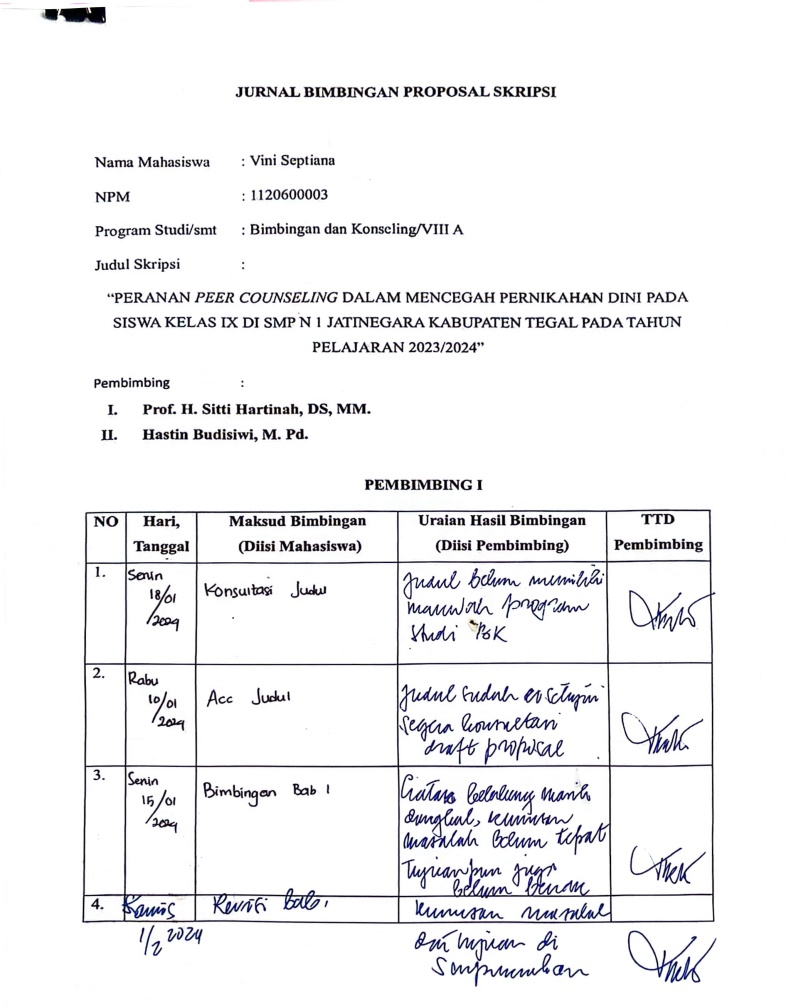 JURNAL BIMBINGAN PROPOSAL SKRIPSI
Nama Mahasiswa : Vini Septiana
NPM : 1120600003
Program Studi/smt : Bimbingan dan Konseling/VIII A
Judul Skripsi :
“PERANAN PEER COUNSELING DALAM MENCEGAH PERNIKAHAN DINI PADA
SISWA KELAS IX DI SMP N 1 JATINEGARA KABUPATEN TEGAL PADA TAHUN
PELAJARAN 2023/2024”
Pembimbing :
I. Prof. H. Sitti Hartinah, DS, MM.
II. Hastin Budisiwi, M. Pd.
PEMBIMBING I
NO Hari, Tanggal Maksud Bimbingan (Diisi Mahasiswa) Uraian Hasil Bimbingan (Diisi Pembimbing) TTD Pembimbing
1. Senin
/01
/2024
Konsultasi Judul
Judul belum memiliki
marwah program
studi BK
2. Rabu
10/01
/2024
Acc Judul
Judul sudah di setujui
segera
draft proposal
3. Senin
15/01
/2024
Bimbingan Bab 1
Latar belakang masih
dangkal, rumusan
masalah belum tepat
Tujuanpun juga
belum benar
4. Kamis
1/2 2024
Revisi bab 1
Rumusan masalah
dan tujuan di
Sempurnakan